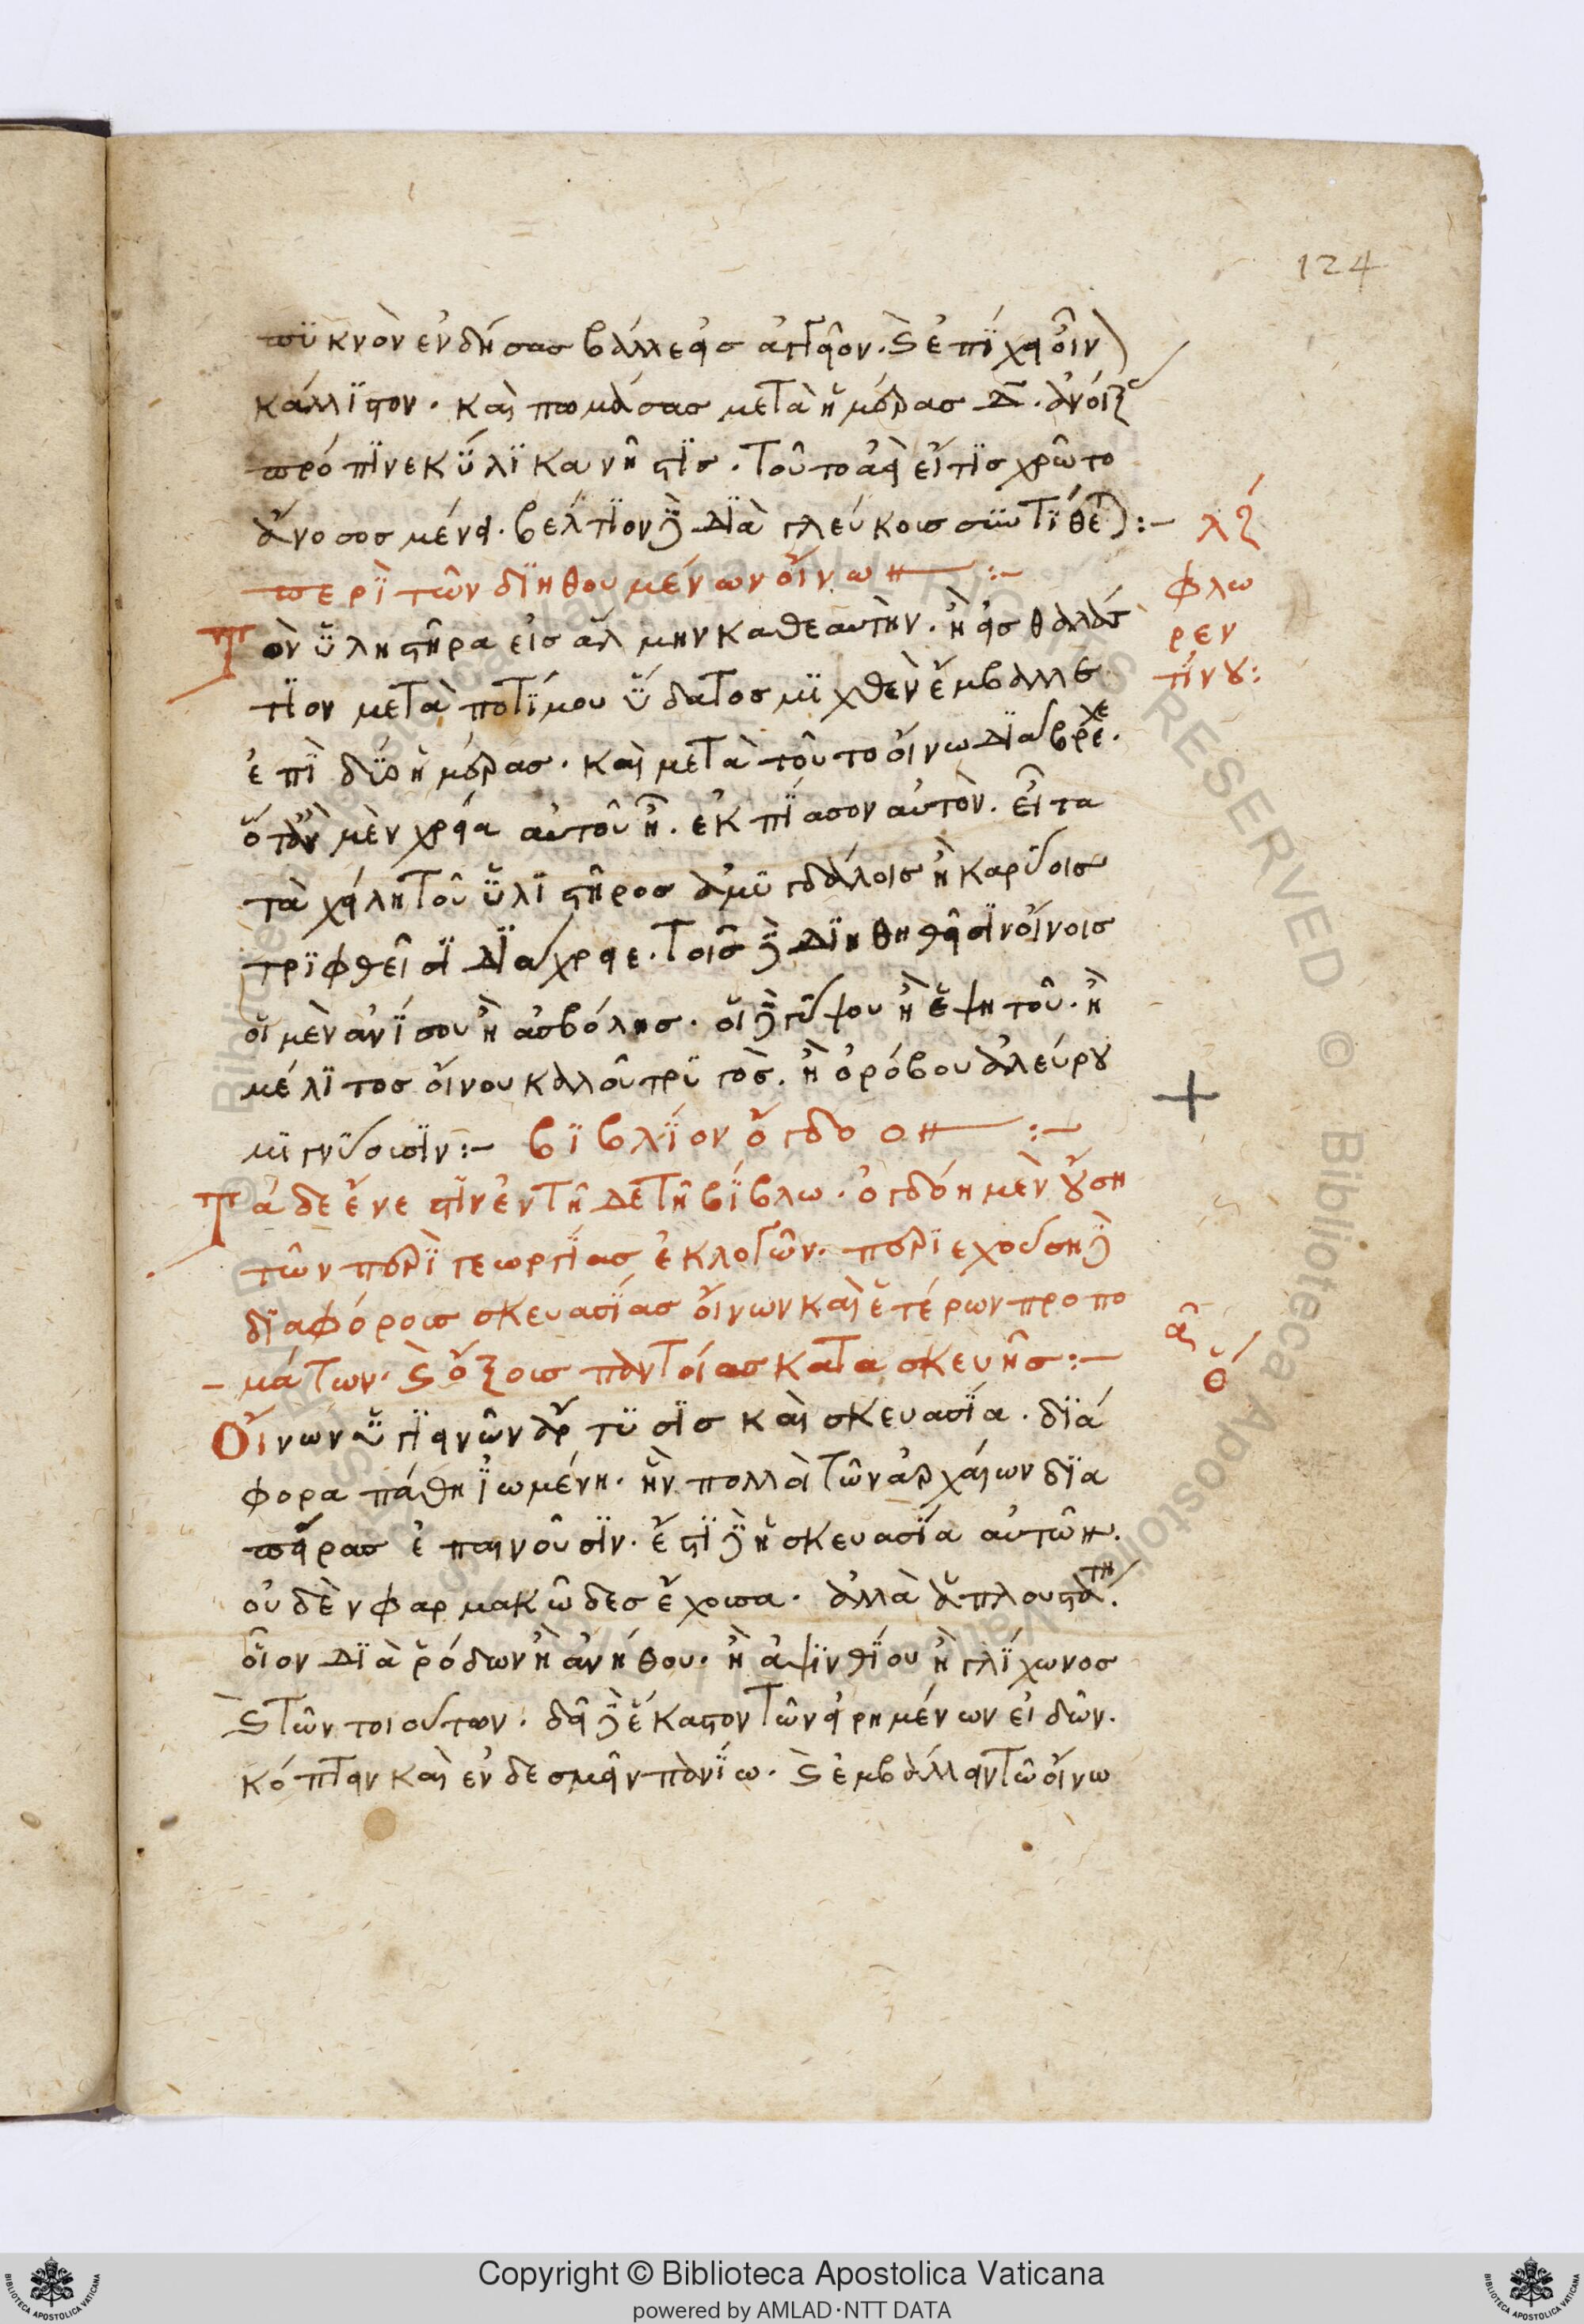 124
πυκνὸν ἐνδήσας βάλλε εἰς ἀγγεῖον. καὶ ἐπίχει οἶνον
κάλλιστον. καὶ πωμάσας μετὰ ἡμέρας δ. ἀνοίξας
πρόπινε κύλικα νῆστις. τοῦτο ἀεὶ εἴ τις χρῶτο
ἄνοσος μένει. βέλτιον δὲ διὰ γλεύκους συντίθεται :-
λζ
περὶ τῶν διηθουμένων οἴνων :-
φλω
ρεν
τίνου :
Τὸν ὑληστῆρα εἰς ἅλμην καθεαυτὴν. ἢ εἰς θαλάσ
τιον μετὰ ποτίμου ὕδατος μιχθὲν ἔμβαλλε
ἐπὶ δύο ἡμέρας. καὶ μετὰ τοῦτο οἴνω διάβρεχε.
ὅταν μὲν χρεία αὐτοῦ ἦ. ἐκπίασον αὐτὸν. εἶτα
τὰ χείλη τοῦ ὑλιστῆρος ἀμυγδάλοις ἢ καρύοις
τριφθεῖσι διάχριε. τοῖς δὲ διηθηθεῖσιν οἴνοις
οἱ μὲν ἀνίσου ἢ ἀσβόλης. οἱ δὲ γύψου ἢ ἑψητοῦ. ἢ
μέλιτος οἴνου καλοῦ τρυγὸς. ἢ ὀρόβου ἀλεύρου
μιγνύουσιν :- βιβλίον ὄγδοον :-
Τάδε ἔνεστιν ἐν τῆδε τῆ βίβλω. ὀγδόη μὲν οὔση
τῶν περὶ γεωργίας ἐκλογῶν. περιεχούση δὲ
διαφόρους σκευασίας οἴνων καὶ ἑτέρων προπο
- μάτων. καὶ ὄξους παντοίας κατασκευῆς :-
Οἴνων ὑγιεινῶν ἄρτυσις καὶ σκευασία. διά
φορα πάθη ἰωμένη. ἣν πολλὰ τῶν ἀρχαίων διὰ
πείρας ἐπαινοῦσιν. ἔστι δὲ ἡ σκευασία αὐτῶν.
οὐδὲν φαρμακῶδες ἔχουσα. ἀλλὰ ἁπλουστάτη.
οἷον διὰ ῥόδων ἢ ἀνήθου. ἢ ἀψινθίου ἢ γλίχωνος
καὶ τῶν τοιούτων. δεῖ δὲ ἕκαστον τῶν εἰρημένων εἰδῶν.
κόπτειν καὶ ἐνδεσμεῖν πανίω. καὶ ἐμβάλλειν τῶ οἴνω
Copyright © Biblioteca Apostolica Vaticana
powered by AMLAD·NTT DATA